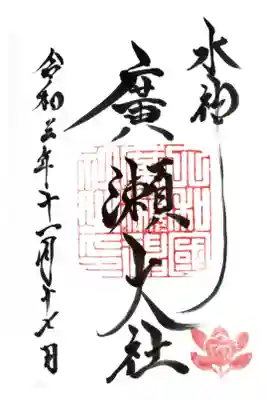 水神
廣瀬大社
令和五年十一月十七日